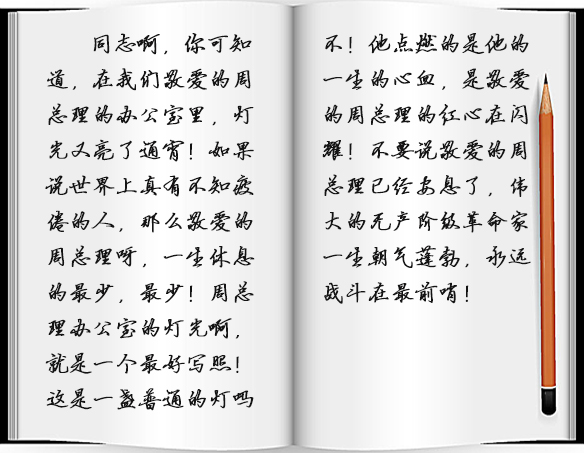 同志啊，你可知
道，在我们敬爱的周
总理的办公室里，灯
光又亮了通宵！如果
说世界上真有不知疲
倦的人，那么敬爱的
周总理呀，一生休息
的最少，最少！周总
理办公室的灯光啊，
就是一个最好写照！
这是一盏普通的灯吗
不！他点燃的是他的
一生的心血，是敬爱
的周总理的红心在闪
耀！不要说敬爱的周
总理已经安息了，伟
大的无产阶级革命家
一生朝气蓬勃，永远
战斗在最前哨！